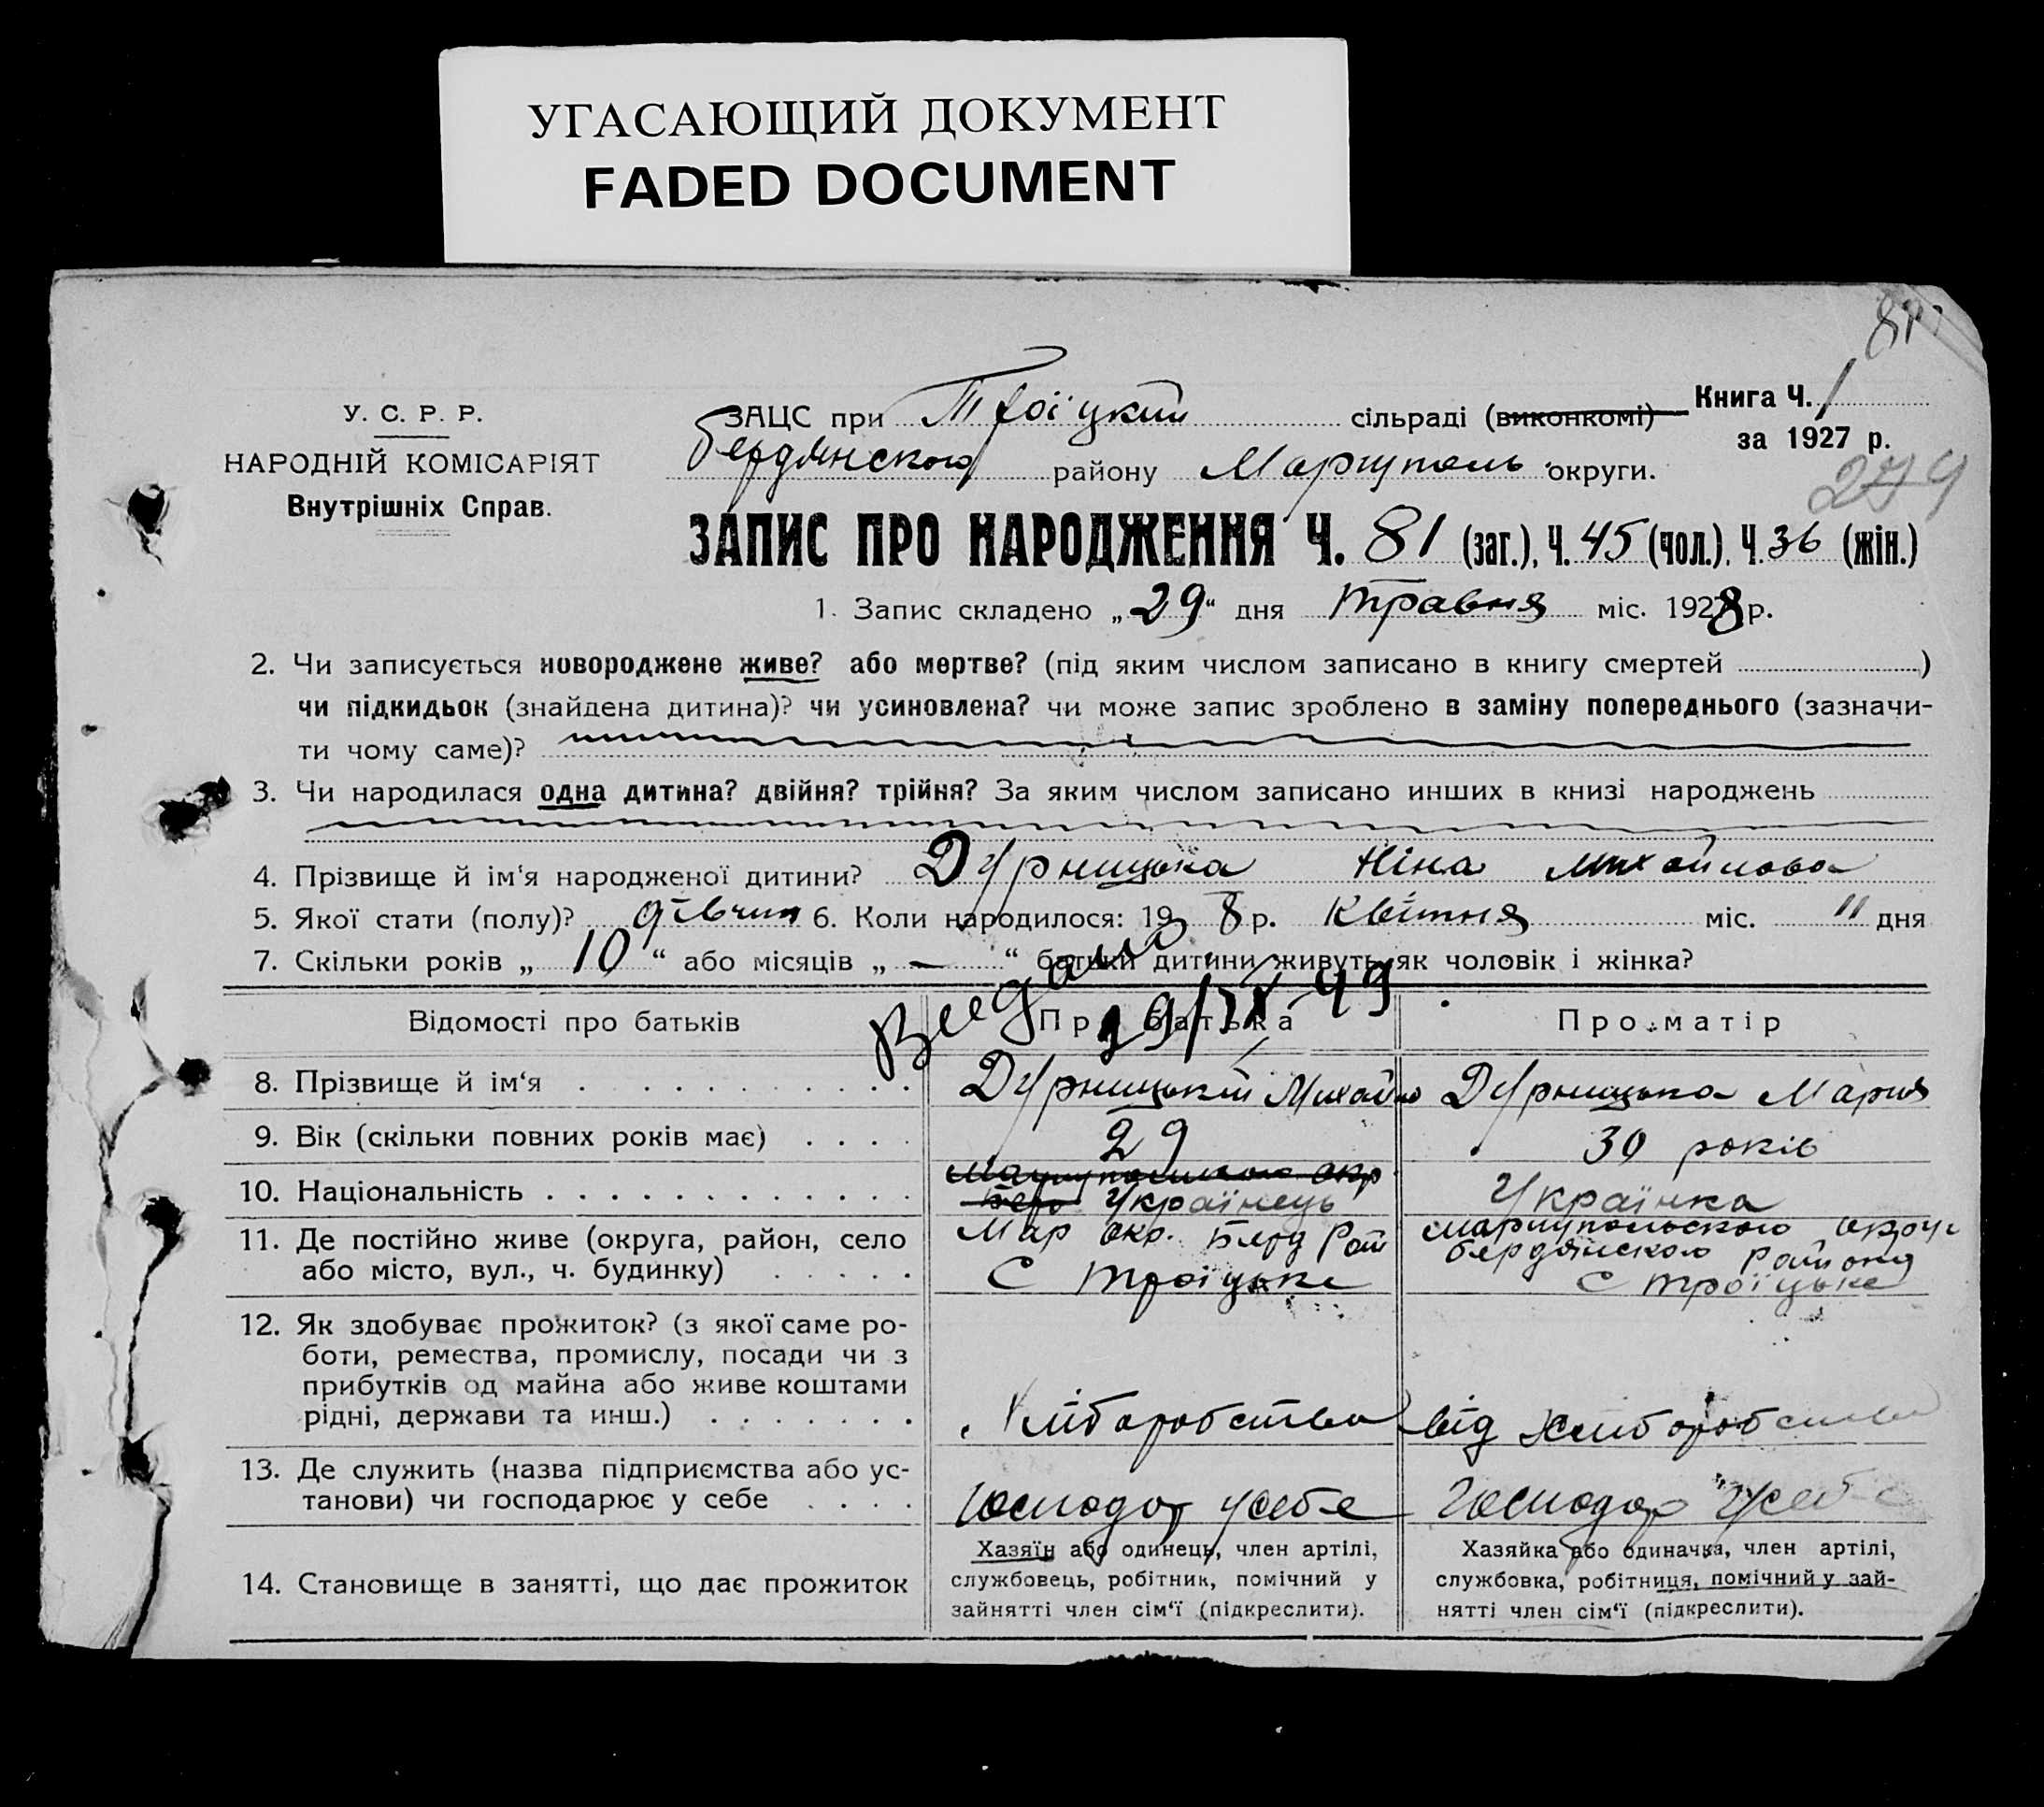 УГАСАЮЩИЙ ДОКУМЕНТ
FADED DOCUMENT
81
У. С. Р. Р.
НАРОДНІЙ КОМІСАРІЯТ
Внутрішніх Справ.
ЗАЦС при Троїцкій сільраді (виконкомі)
Книга Ч. 1
за 1927 р.
бердянського району Маріуполь округи.
279
ЗАПИС ПРО НАРОДЖЕННЯ Ч. 81 (заг.), Ч. 45 (чол.), Ч. 36 (жін.)
1. Запис складено „29“ дня травня міс. 1928 р.
2. Чи записується новороджене живе? або мертве? (під яким числом записано в книгу смертей )
чи підкидьок (знайдена дитина)? чи усиновлена? чи може запис зроблено в заміну попереднього (зазначи-
ти чому саме)?
3. Чи народилася одна дитина? двійня? трійня? За яким числом записано инших в книзі народжень
4. Прізвище й ім‘я народженої дитини? Дурницька Ніна Михайлова
5. Якої стати (полу)? дівчин 6. Коли народилося: 19 8 р. Квітня міс. 11 дня
7. Скільки років „10“ або місяців „—“ батьки дитини живуть як чоловік і жінка?
Видано 29/IX-49
Відомості про батьків Про батька Про матір
8. Прізвище й ім‘я Дурницький Михайло Дурницька Мария
9. Вік (скільки повних років має) 29 30 років
10. Національність Українець Українка
11. Де постійно живе (округа, район, село
або місто, вул., ч. будинку)
Мар окр. Берд Рай
С Троїцьке
мариупольского округ
бердянского Района
С троїцьке
12. Як здобуває прожиток? (з якої саме ро-
боти, ремества, промислу, посади чи з
прибутків од майна або живе коштами
рідні, держави та инш.)
Хліборобства від хліборобства
13. Де служить (назва підприємства або ус-
танови) чи господарює у себе
Господар усебе Господар усебе
14. Становище в занятті, що дає прожиток
Хазяїн або одинець, член артілі,
службовець, робітник, помічний у
зайнятті член сім‘ї (підкреслити).
Хазяйка або одиначка, член артілі,
службовка, робітниця, помічний у зай-
нятті член сім‘ї (підкреслити).